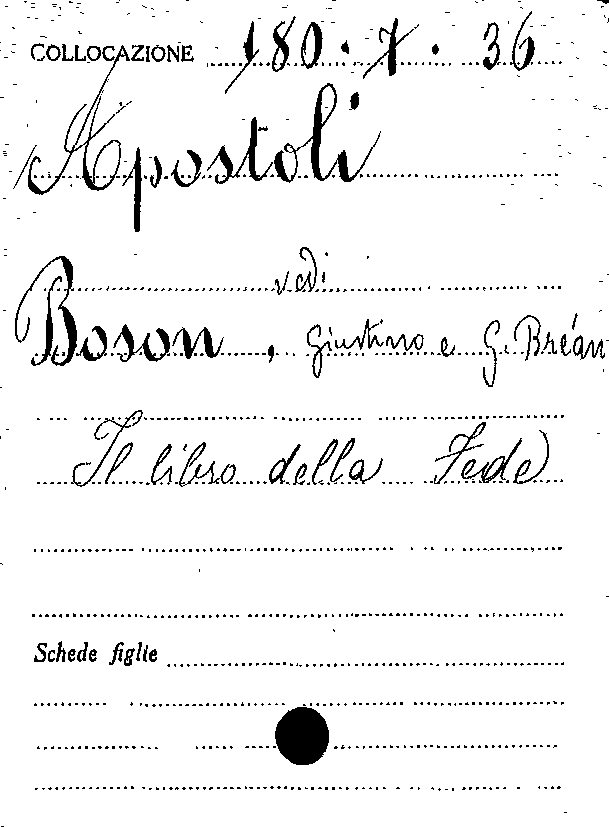 COLLOCAZIONE 180.7.36
Apostoli
vedi
Boson, Giustino e G. Bréan
Il libro della Fede
Schede figlie